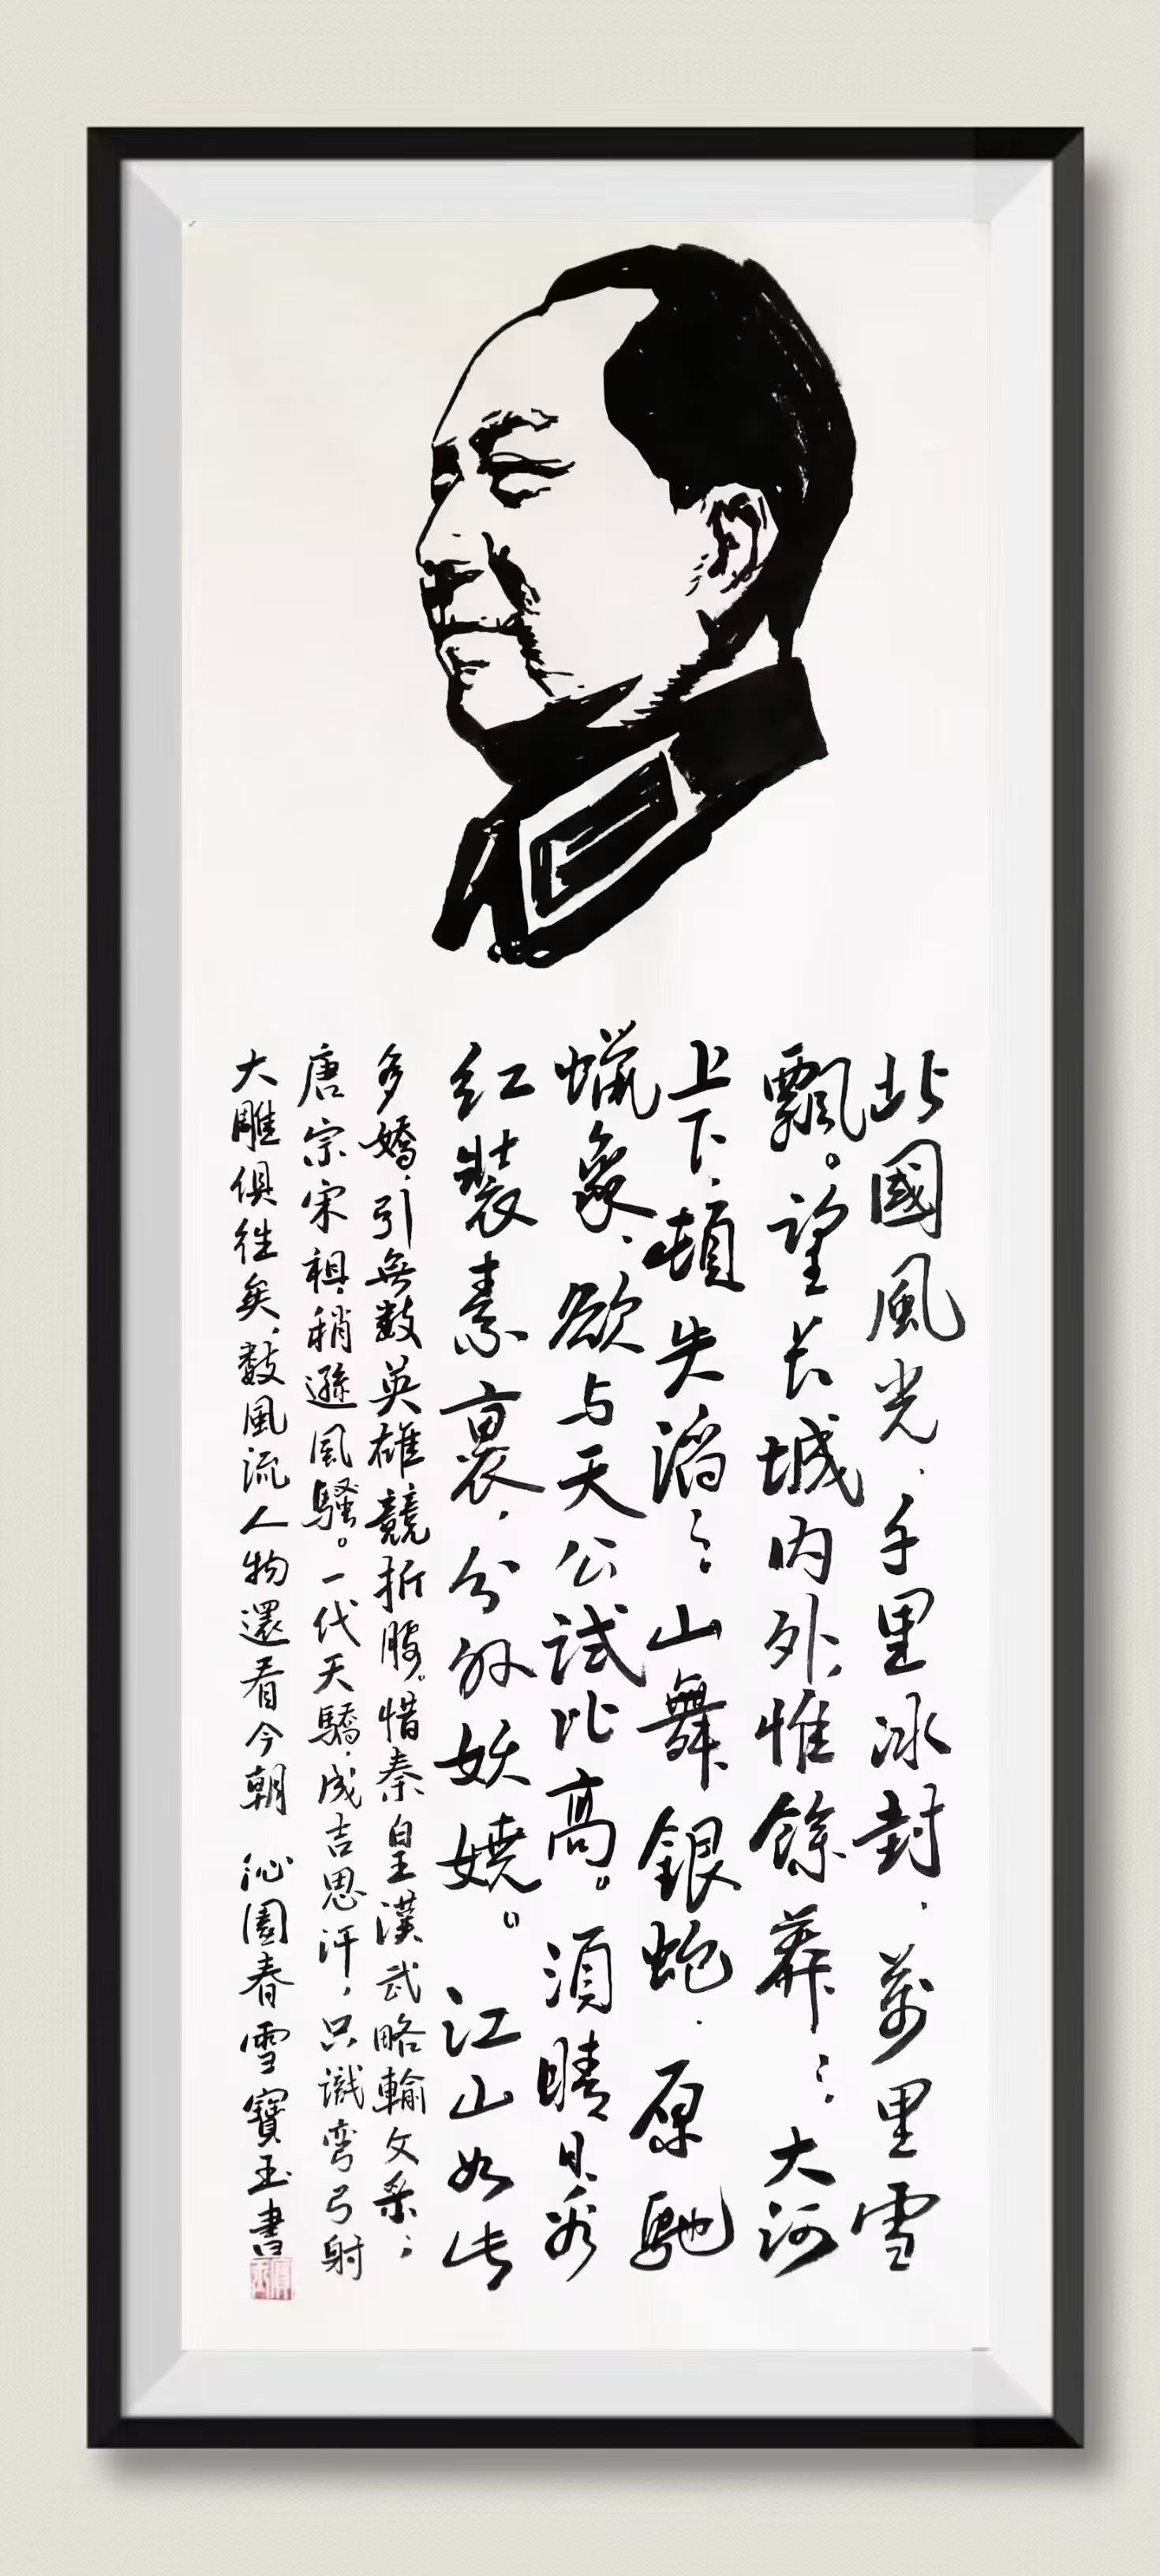 北國風光．千里冰封．萬里雪
飄。望长城内外，惟餘莽〻．大河
上下．頓失滔〻．山舞銀蛇．原馳
蝋象、欲与天公試比高。須晴日看
红装素裹，分外妖嬈。江山如此
多嬌．引無數英雄競折腰。惜秦皇漢武略輸文采；
唐宗宋祖．稍遜風騷。一代天驕．成吉思汗，只識弯弓射
大雕俱往矣．數風流人物還看今朝 沁園春雪寶玉書